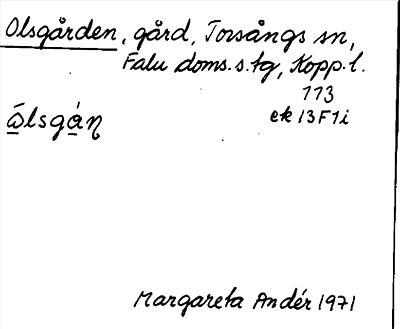 Olsgården, gård, Torsångs sn,
Falu doms.s.tg, Kopp. l.
113
ek 13F1i
ώ̲lsgά̲ɳ
Margareta Andér 1971